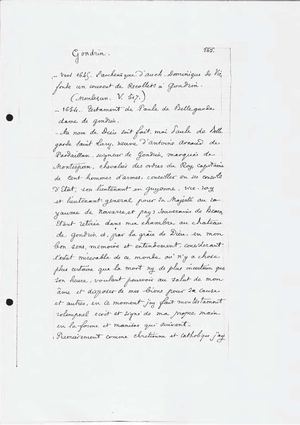 Gondrin.
165.
_ Vers 1625. l'archevêque d'auch. Dominique de Vic,
fonde un couvent de Recollets à Gondrin.
(Monlezun. V. 517.)
_ 1634. Testament de Paule de Bellegarde
dame de gondrin.
Au nom de Dieu soit fait, moi Paule de Belle
garde Saint Lary, veuve d'Antoine Arnaud de
Pardaillan, seigneur de Gondrin, marquis de
Montespan, chevalier des ordres du Roy, capitaine
de cent hommes d'armes, conseiller en ses conseils
d'Etat, son lieutenant en guyenne, vice-roy
et lieutenant general pour Sa Majesté au ro
yaume de Navarre, et pays Souverain de Bearn,
Etant retirée dans ma chambre au château
de gondrin et, par la grâce de Dieu, en mon
bon sens, memoire et entendement, considerant
l'estat miserable de ce monde où n'y a chose
plus certaine que la mort ny de plus incertain que
son heure, voulant pourvoir au salut de mon
âme et disposer de mes biens pour sa cause
et autres, en ce moment j'ay fait mon testament
solemnel ecrit et signé de ma propre main
en la forme et maniere qui suivent.
Premierement comme chretienne et catholique j'ay